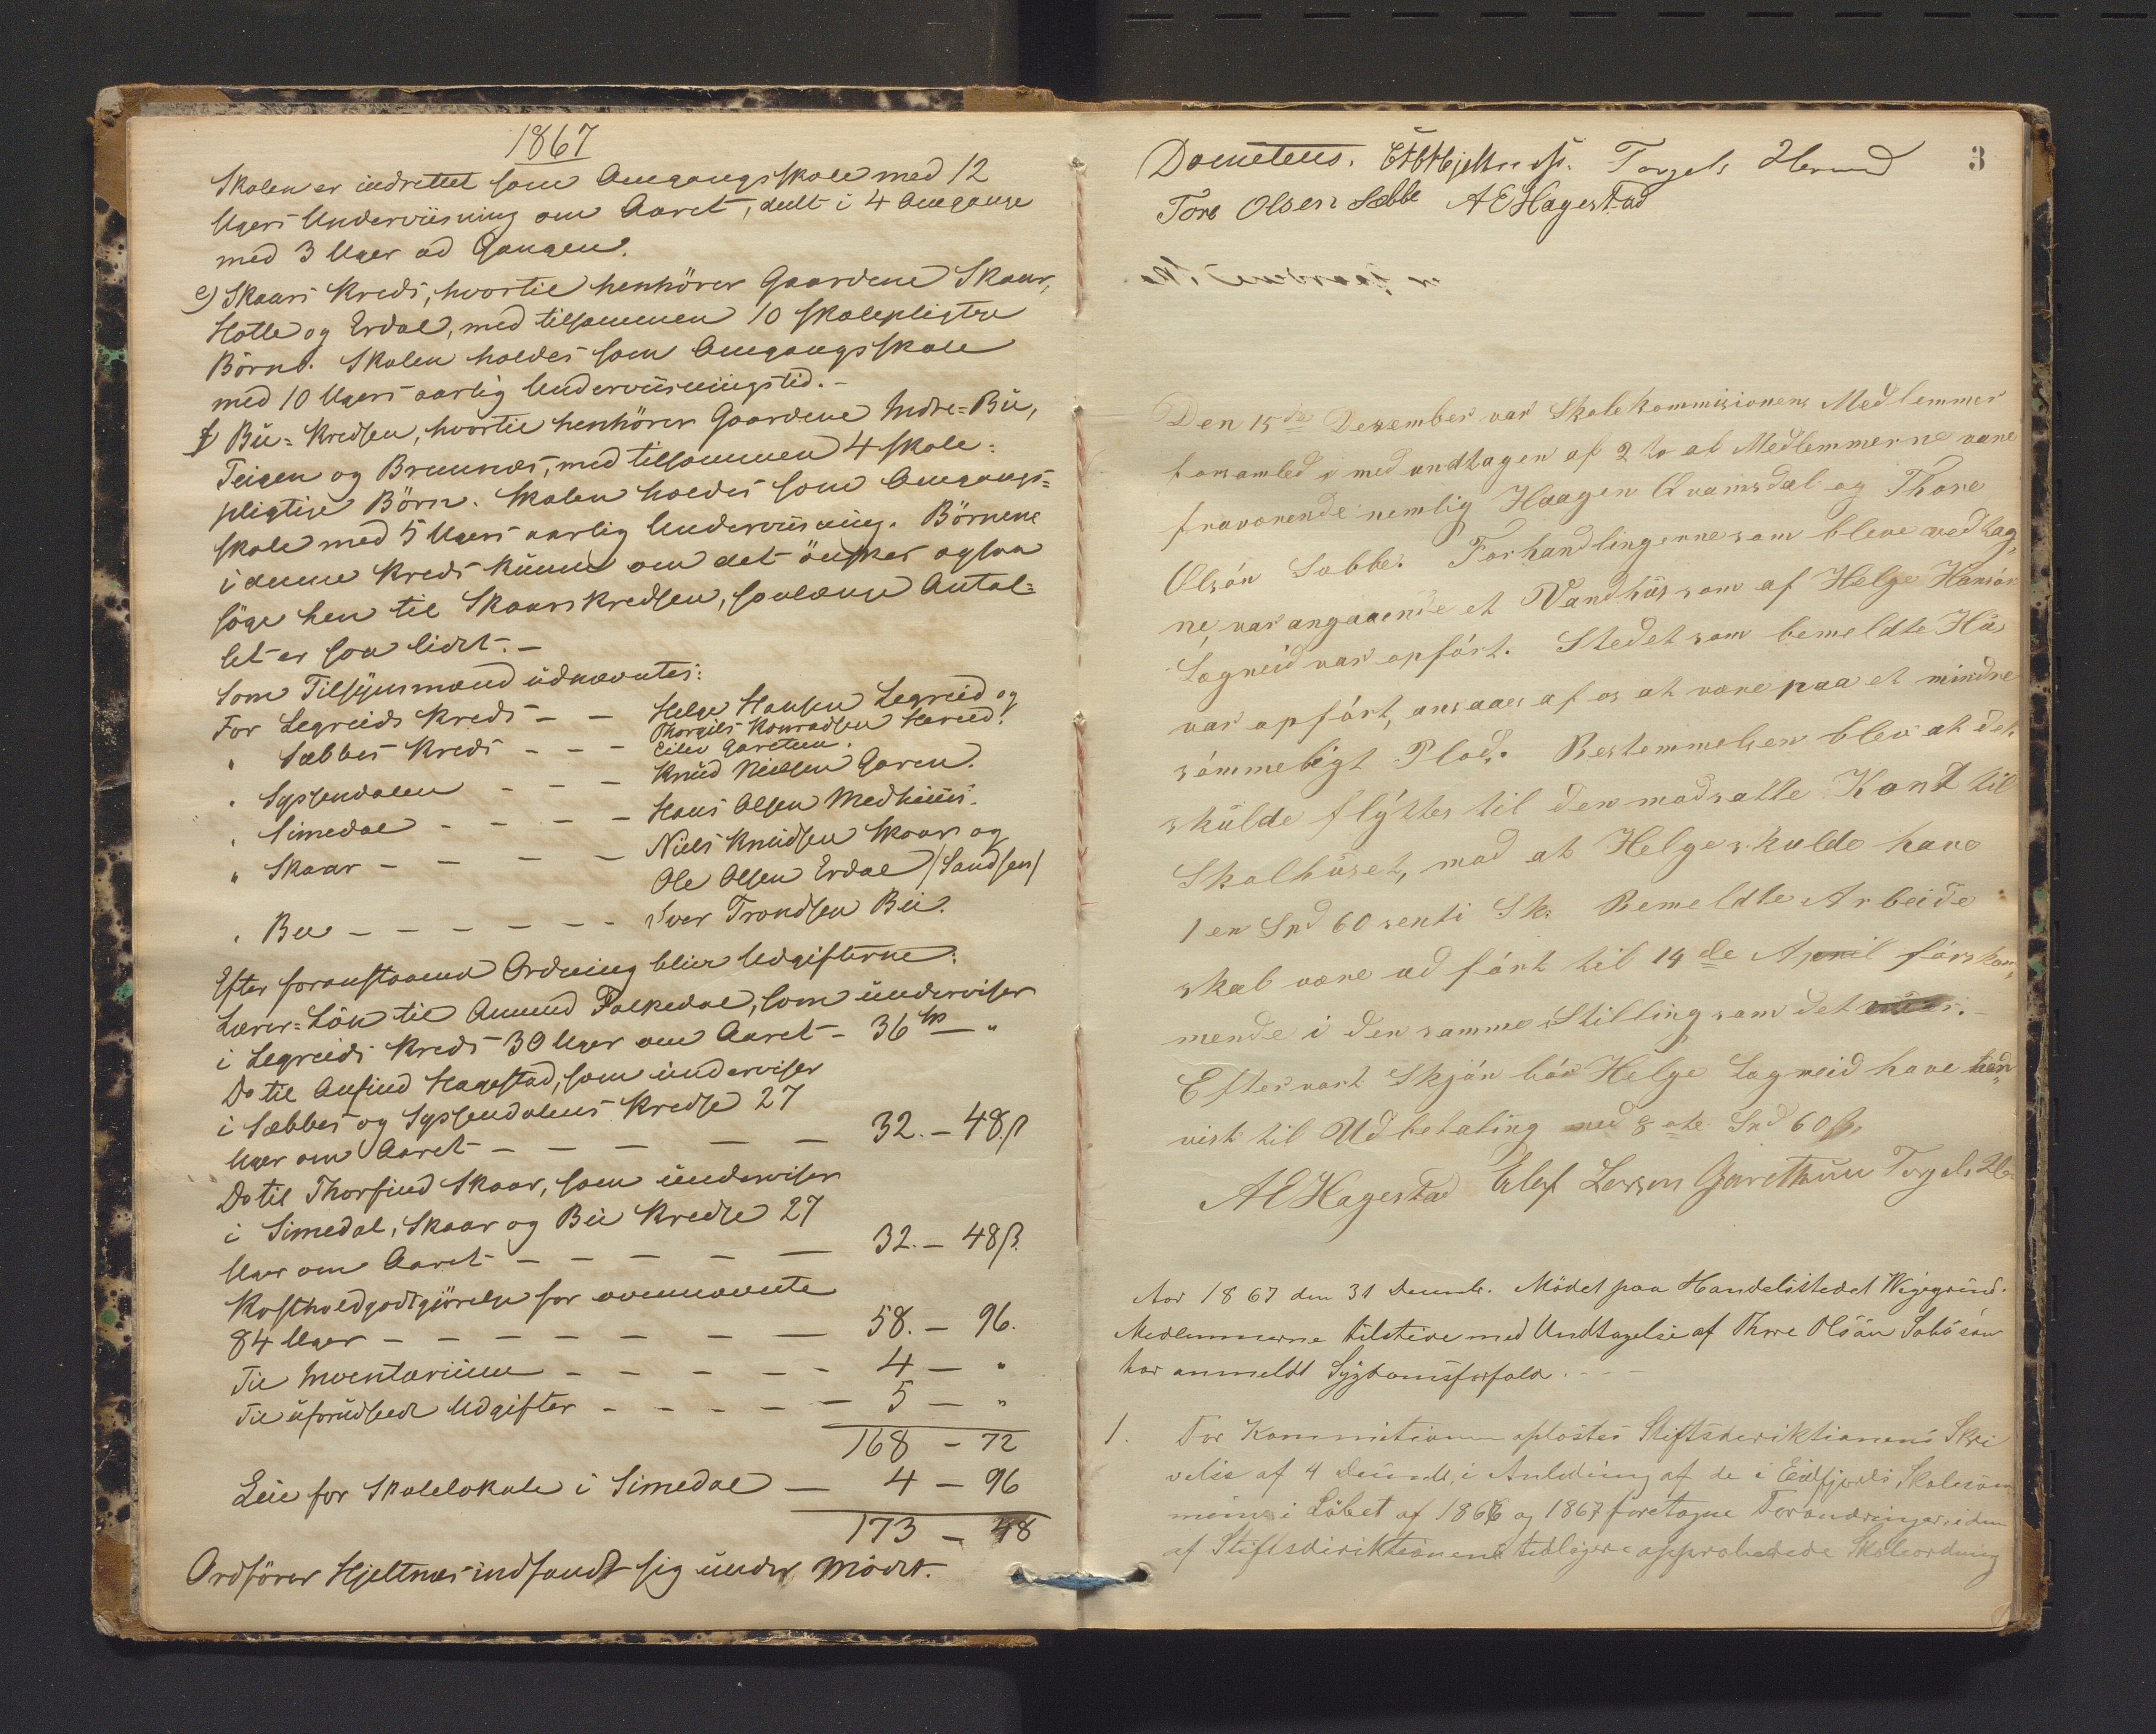 1867
Skolen er indrettet som Omgangsskole med 12
Ugers Underviisning om Aaret, deelt i 4 Omgange
med 3 Uger ad Gangen.
e) Skaars Kreds, hvortil henhörer Gaardene Skaar,
Hotle og Erdal, med tilsammen 10 skolepligtige
Börn. Skolen holdes som Omgangsskole
med 10 Ugers aarlig Underviisningstid. -
f Bu-Kredsen, hvortil henhörer Gaardene Indre-Bu,
Teigen og Brunnæs, med tilsammen 4 skole-
pligtige Börn. Skolen holdes som Omgangs-
skole med 5 Ugers aarlig Underviisning. Börnene
i denne Kreds kunne om det önskes ogsaa
söge hen til Skaarskredsen, saalænge Antal-
let er saa lidet. -
Som Tilsynsmænd udnævntes:
For Legreids Kreds - - Helge Hansen Legreid og
Thorgils Konradsen Hereid.
" Sæbbes Kreds - - - Eilev Garetun.
" Syssendalen - - - Knud Nielsen Garen.
" Simedal - - - - Hans Olsen Medhuus.
" Skaar - - - - Niels Knudsen Skaar og
Ole Olsen Erdal (Sandsen)
" Bu - - - - - - Iver Trondsen Bu.
Efter foranstaaende Ordning bliver Udgifterne:
Lærer-Lön til Amund Falkedal, som underviser
i Legreids Kreds 30 Uger om Aaret - 36 Sp - "
Do til Anfind Hagestad, som underviser
i Sæbbes og Syssendalens Kredse 27
Uger om Aaret - - - - - 32. - 48 ß
Do til Thorfind Skaar, som underviser
i Simedal, Skaar og Bu Kredse 27
Uger om Aaret - - - - - 32. - 48 ß.
Kostholdgodtgjörelse for ovennævnte
84 Uger - - - - - - - 58. - 96.
Til Inventarium - - - - - 4 - "
Til uforudseede Udgifter - - - - - 5 - "
168 - 72
Leie for Skolelokale i Simedal - 4 - 96
173 - 48
Ordförer Hjeltnæs indfandt sig under Mödet.
3
Torgels Hereid
Tore Olsen Sæbbe AEHagestad
Den 15de Desember var Skolekommisionens Medlemmer
forsamled med undtagen af 2to at Medlemmerne vare
fraværende nemlig Haagen Qvamsdal og Thore
Olsón Sæbbe. Forhandlingerne som bleve vedtag-
ne, var angaaende et Vandhús som af Helge Hansón
Lægreid var opfórt. Stedet som bemeldte Hús
var opfórt, ansaaes af os at være paa et mindre
sómmeligt Plads. Bestemmelsen blev at det
skulde flyttes til den modsatte Kant til
Skolhúset, mod at Helge skulde have
1 en Snd 60 senti Sk: Bemeldte Arbeide
skal være ud fórt til 14de April fórskom-
mende i den samme Stilling som det
Eftervart Skjón bór Helge Lægreid have hen-
vist til Udbetaling med 8 ote Snd 60 ß,
AEHagestad Garethuun Torgels
Aar 1867 den 31 Decembr. Mödet paa Handelsstedet Wigegrund.
Medlemmerne tilstede med Undtagelse af Thore Olsön Sæbö som
har anmeldt Sygdomsforfald. - - -
1. For Kommitionen oplæstes Stiftsdirektionens Skri
velse af 4 i Anledning af de i Eidfjords Skolekom
muni i Löbet af 1866 og 1867 foretagne Forandringer i den
af Stiftsdirektionen tidligere approberede Skoleordning